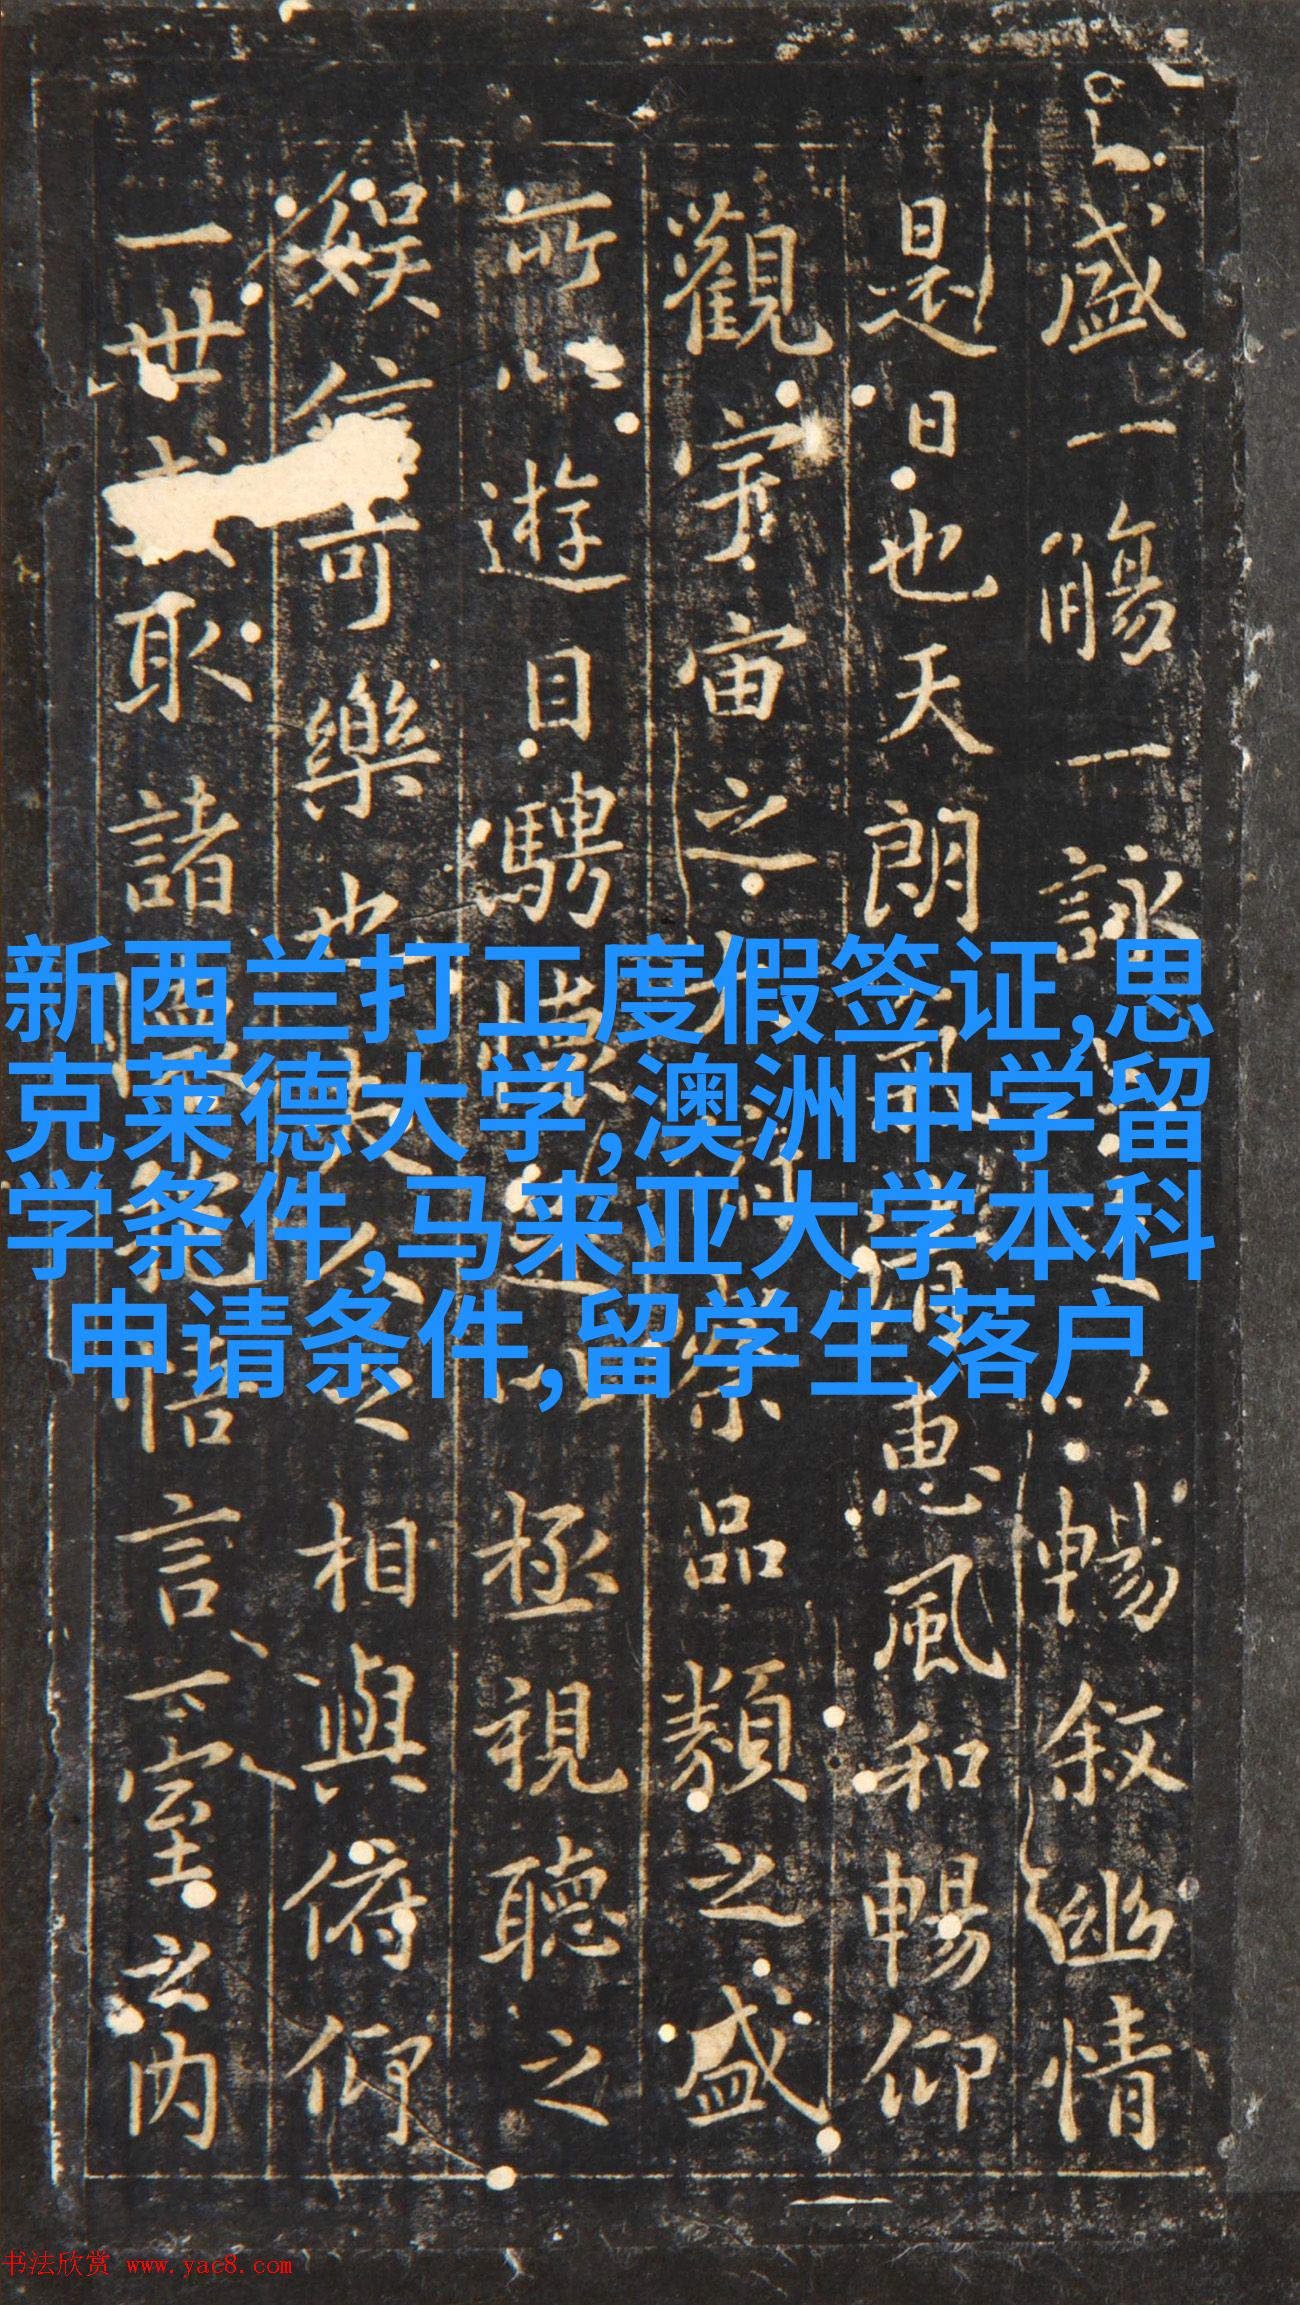 盛一觴一詠以暢叙幽情
是日也天朗惠風和暢仰
觀宇宙之察品類之盛
所以遊目騁懷極視聽之
娛信可樂也之相與俯仰
一世取諸悟言一室之内
新西兰打工度假签证,思
克莱德大学,澳洲中学留
学条件,马来亚大学本科
申请条件,留学生落户
书法欣赏 www.yac8.com